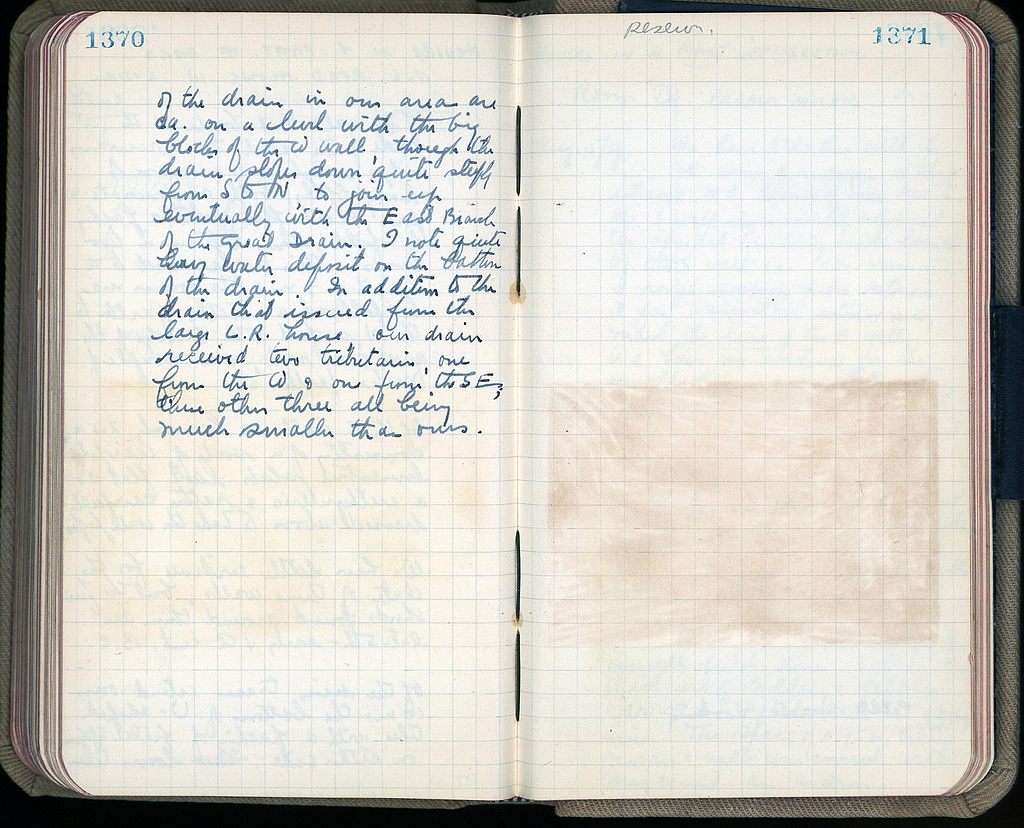 1370
of the drain in our area are
ca. on a level with the big
blocks of the W wall, though the
drain slopes down quite steeply
from S to N to join up
eventually with the East Branch
of the Great Drain. I note quite
heavy water deposit on the bottom
of the drain. In addition to the
drain that issued from the
large L.R. house, our drain
received two tributaries, one
from the W & one from the SE;
these other three all being
much smaller than ours.
1371